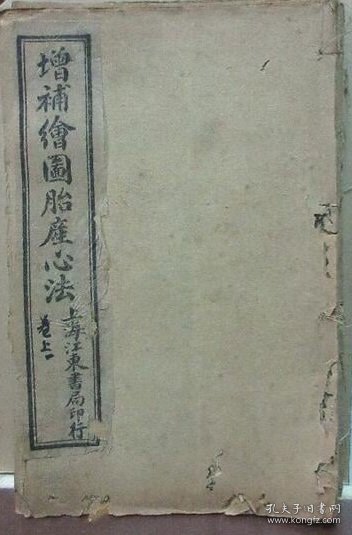 增補繪圖胎產心法
上海江東書局印行
卷上一
孔夫子旧书网
www.kongfz.com